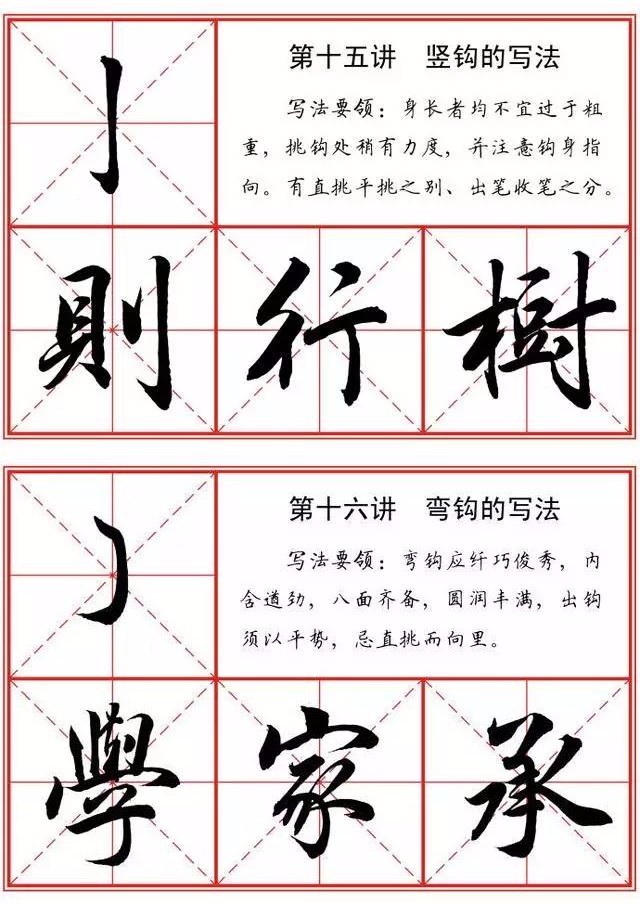 第十五讲 竖钩的写法
写法要领：身长者均不宜过于粗
重，挑钩处稍有力度，并注意钩身指
向。有直挑平挑之别、出笔收笔之分。
亅
則 行 樹
第十六讲 弯钩的写法
写法要领：弯钩应纤巧俊秀，内
含遒劲，八面齐备，圆润丰满，出钩
须以平势，忌直挑而向里。
學 家 承